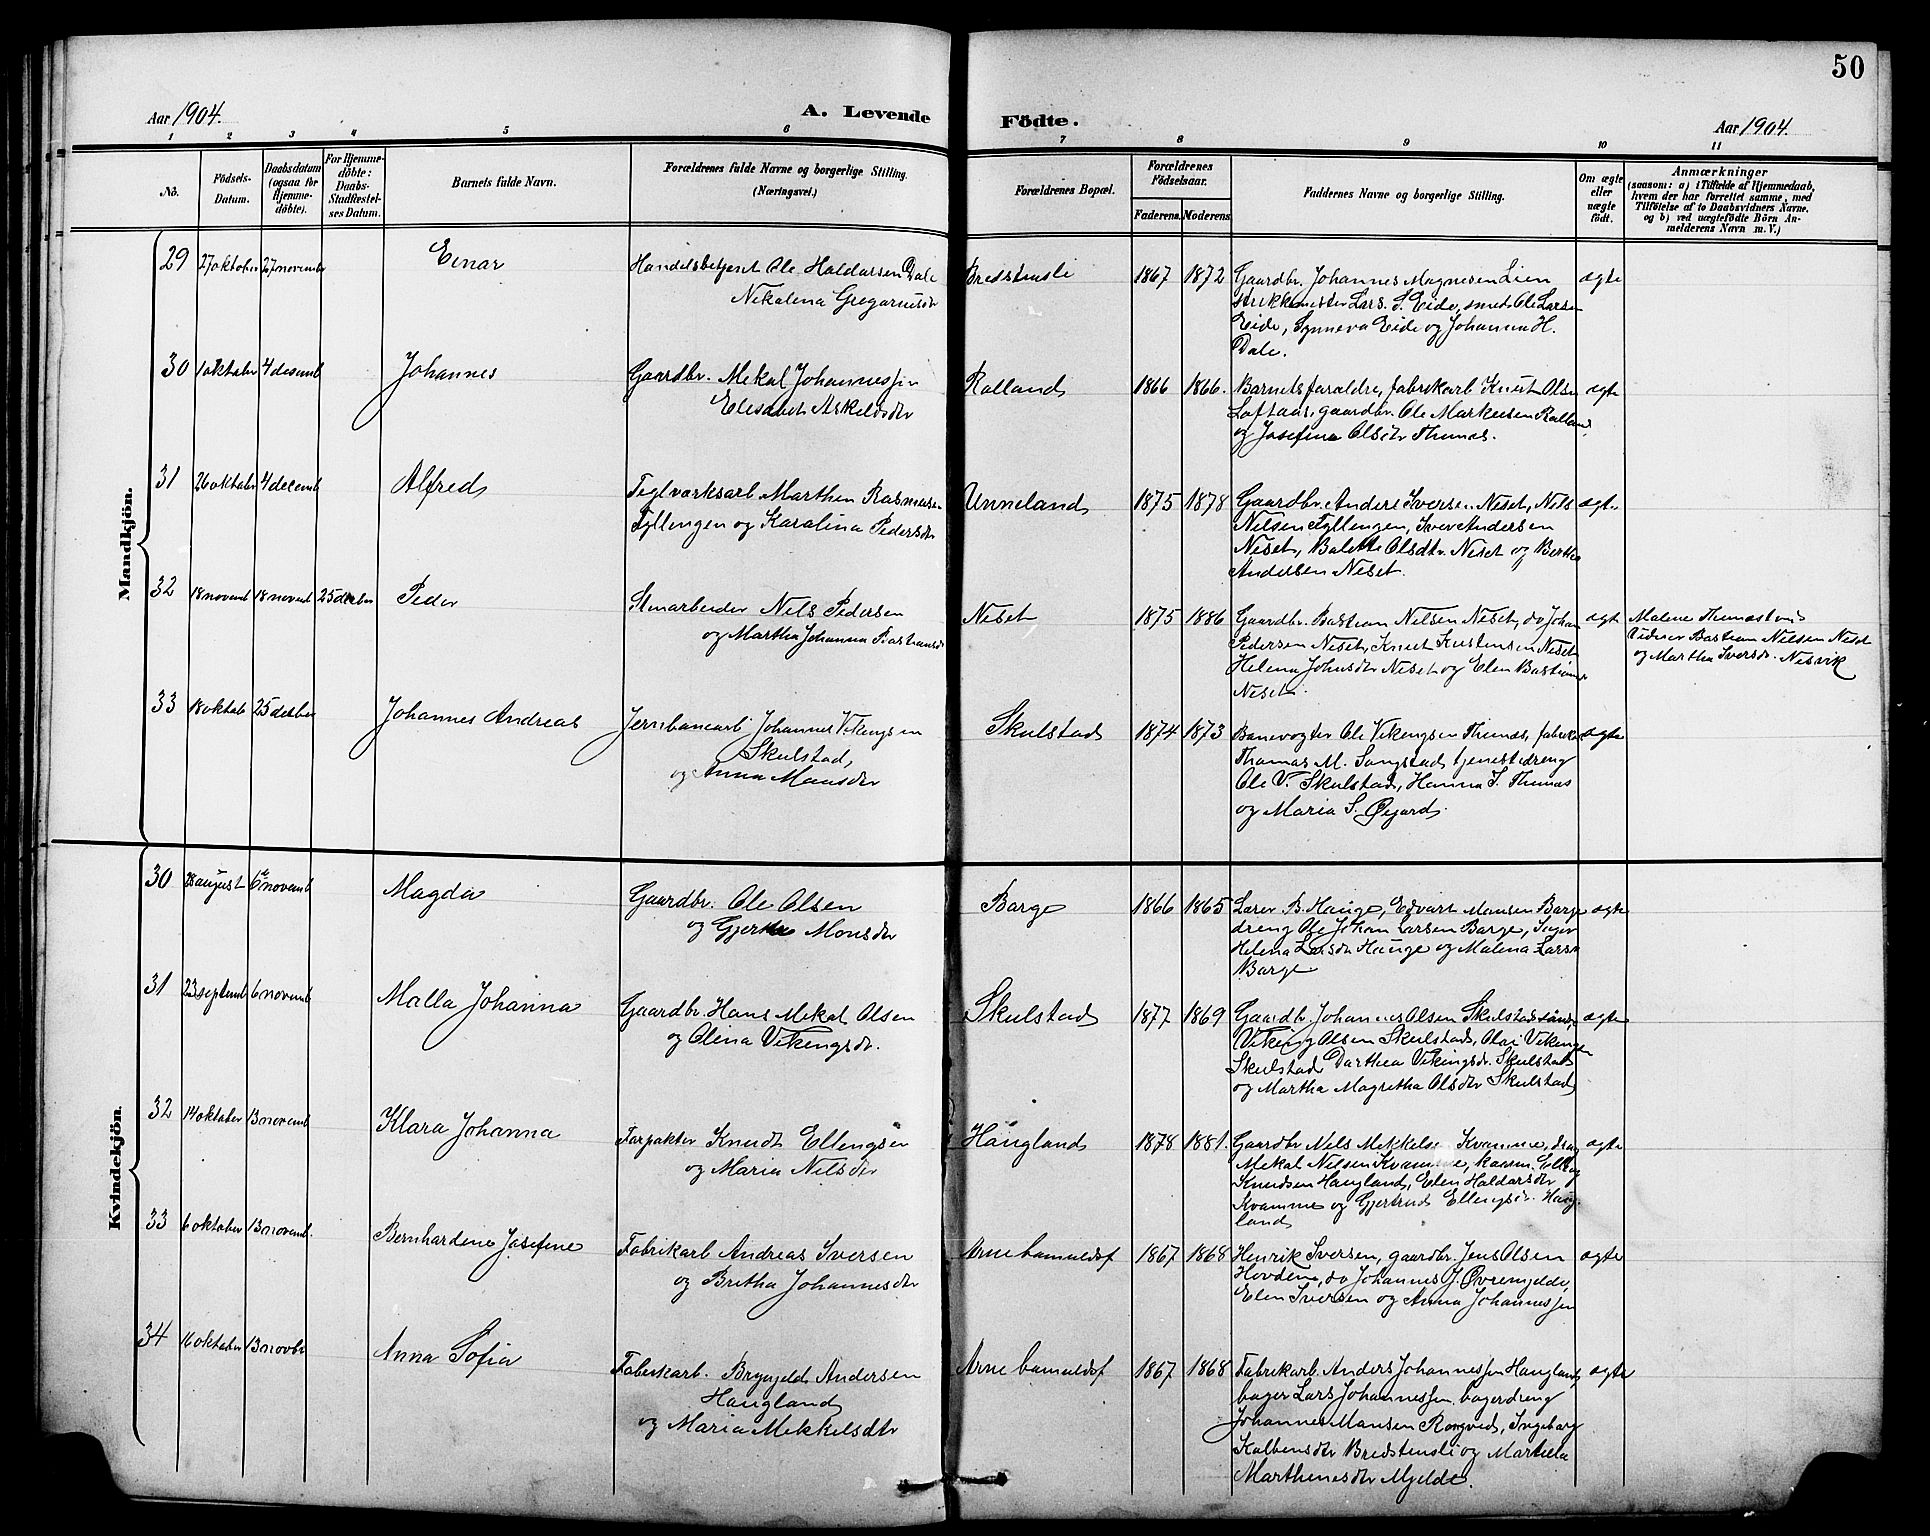 50
Aar 1904.
A. Levende Födte.
Aar 1904.
1 2 3 4 5 6 7 8 9 10 11
Nö.
Födsels-Datum.
Daabsdatum (ogsaa for Hjemme-döbte).
For Hjemme-döbte: Daabs-Stadfæstel-ses Datum.
Barnets fulde Navn.
Forældrenes fulde Navne og borgerlige Stilling.
(Næringsvei.)
Forældrenes Bopæl.
Forældrenes Födselsaar.
Faderens. Moderens.
Faddernes Navne og borgerlige Stilling.
Om ægte eller uægte födt.
Anmærkninger
(saasom: a) i Tilfælde af Hjemmedaab,
hvem der har forrettet samme, med
Tilföielse af to Daabsvidners Navne,
og b) ved uægtefödte Börn An-
melderens Navn m. V.)
Mandkjön.
29 27 oktober 27 november Einar
Handelsbetjent Ole Haldorsen Dale
Nekolena Gregoriusdr
Bredstensli 1867 1872
Gaardbr. Johannes Magnesen Lien
strikkmester Lars S. Eide, smed Ole Larsen
Eide, Synneva Eide og Johanna H.
Dale.
ægte
30 1 oktober 4 desemb Johannes
Gaardbr. Mekal Johannessen
Elesabet Askeldsdr
Rolland 1866 1866.
Barnets foraldre, fabrikarb Knut Olsn
Loftaas, gaardbr. Ole Markusen Rolland
og Josefine Olsdtr Thunas.
ægte
31 26 oktober 4 decemb Alfred
Teglværksarb Marthen Rasmusen
Tyllengen og Karolina Pedersdr
Unneland 1875 1878
Gaardbr. Anders Iversen Neset, Nils
Nelsen Tyllengen, Iver Andersen
Neset, Bolette Olsdtr. Neset og Berthe
Andersen Neset.
ægte
32 18 novemb 18 novemb 25 desber Peder
Stenarbeider Nels Pedersen
og Martha Johanna Bastiansdr
Neset 1875 1886
Gaardbr. Bastian Nelsen Neset, do Johan
Pedersen Neset, Knut Knutsen Neset
Helena Johnsdtr Neset og Elen Bastians
Neset.
ægte
Malene Thunestvei
Vidner Bastian Nelsen Neset
og Martha Iversdr. Nesvik
33 18 oktob 25 desber Johannes Andreas
Jernbanearb Johannes Vikengsen
Skulstad,
og Anna Monsdr
Skulstad 1874 1873
Banevogter Ole Vikengsen Thunas, fabrika
Thomas M. Songstad tjenestedreng
Ole V. Skulstad, Hanna I. Thunas
og Maria S. Øyjord.
ægte
Kvindekjön.
30 28 august 6te novemb Magda
Gaardbr. Ole Olsen
og Gjertru Monsdr
Borge 1866 1865
Lærer B. Hauge, Edvart Monsen Borge
dreng Ole Johan Larsen Borge,
Helena Larsdr Hauge og Malena Larsn
Borge
ægte
31 23 septemb 6 novemb Malla Johanna
Gaardbr. Hans Mekal Olsen
og Olina Vikengsdr.
Skulstad 1877 1869
Gaardb Johannes Olsen Skulstad
Viking Olsen Skulstad, Olai Vikengen
Skulstad Dorthea Vikingsdr. Skulstad
og Martha Magretha Olsdtr Skulstad
ægte
32 14 oktober 13 novemb Klara Johanna
Forpakter Knudt Ellengsen
og Maria Nelsdr
Haugland 1878 1881.
Gaardbr Nels Mekkelse Kvamme, dreng
Mekal Nelsen Kvamme, kaarm. Elleng
Knudsen Haugland, Elen Haldorsdtr
Kvamme og Gjertrud Ellengsdr. Haug-
land
ægte
33 6 oktober 13 novemb. Bernhardene Josefine
Fabrikarb Andreas Iversen
og Bretha Johannesdtr
Arne bomuldsf 1867 1868
Henrik Iversen, gaardbr. Jens Olsen
Hovden, do Johannes J. Øvremjelde,
Elen Iversen og Anna Johannessen
ægte
34 16 oktober 13 novbr Anna Sofia
Fabrikarb. Brynjeld Andersen
Haugland
og Maria Mekkelsdtr
Arne bomuldsf 1867 1868
Fabrikarb. Anders Johannessen Haugland
bager Lars Johannessen bagerdreng
Johannes Mansen Rongved, Ingeborg
Kolbensdtr Bredstensli og Martha
Marthenesdtr Mjelde.
ægte